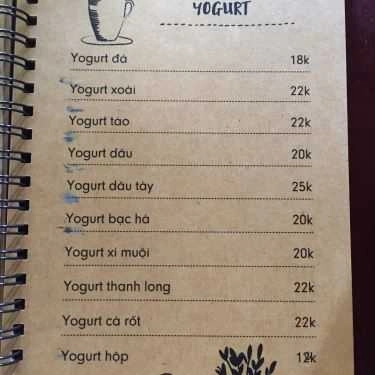 YOGURT
Yogurt đá 18k
Yogurt xoài 22k
Yogurt táo 22k
Yogurt dâu 20k
Yogurt dâu tây 25k
Yogurt bạc hà 20k
Yogurt xí muội 20k
Yogurt thanh long 22k
Yogurt cà rốt 22k
Yogurt hộp 12k